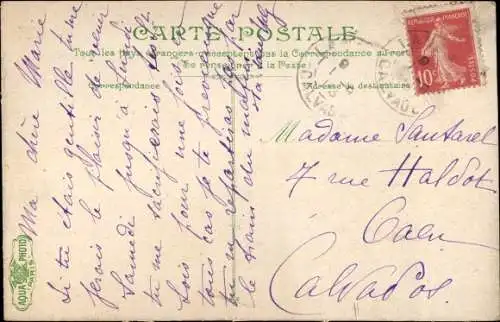 CARTE POSTALE
Tous les pays étrangers n'acceptent pas la Correspondance au recto
Se renseigner à la Poste
Correspondance
Adresse du destinataire
REPUBLIQUE FRANÇAISE
10c
POSTES
CALVADOS
AQUA PHOTO
PARIS
Ma chère Marie
Si tu étais gentille tu me
ferais le plaisir de venir
Samedi jusqu'à Lundi
tu me sacrifieras
une fois
tous cas je te
tu repartiras par
le train du matin
Madame Santarel
7 rue Haldot
Caen
Calvados.